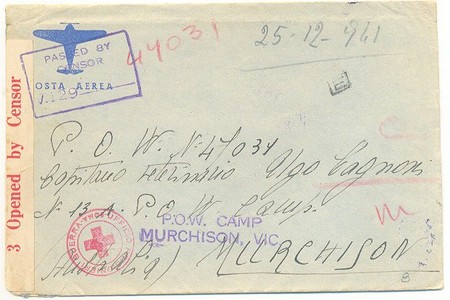 44031
25-12-941
PASSED BY
CENSOR
V.129
POSTA AEREA
3 Opened by Censor
P. O. W. N. 4/034
Capitano Veterinario Ugo Cagnoni
N. 13 A. P.O.W. Camp.
P.O.W. CAMP
MURCHISON, VIC.
(Australia) MURCHISON
C
M
8